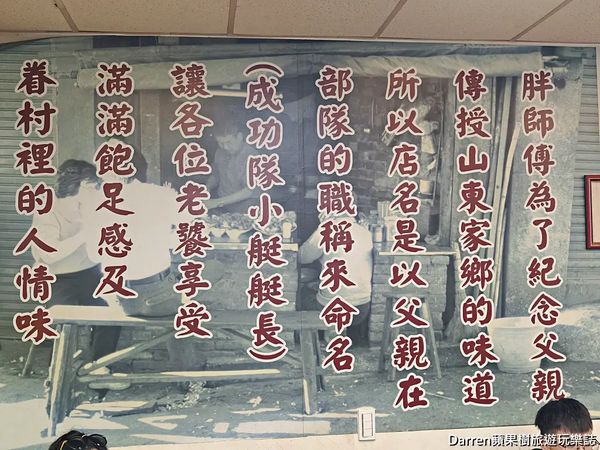 胖師傅為了紀念父親
傳授山東家鄉的味道
所以店名是以父親在
部隊的職稱來命名
(成功隊小艇艇長)
讓各位老饕享受
滿滿飽足感及
眷村裡的人情味
Darren蘋果樹旅遊玩樂誌